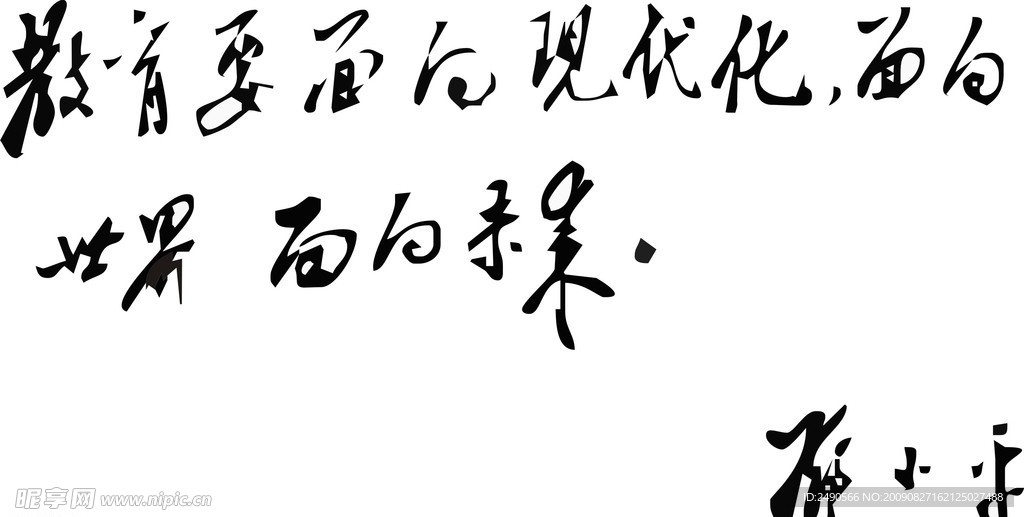 教育要面向现代化，面向
世界 面向未来．
邓小平
昵享网 www.nipic.cn
ID:2490566 NO:20090827162125027488